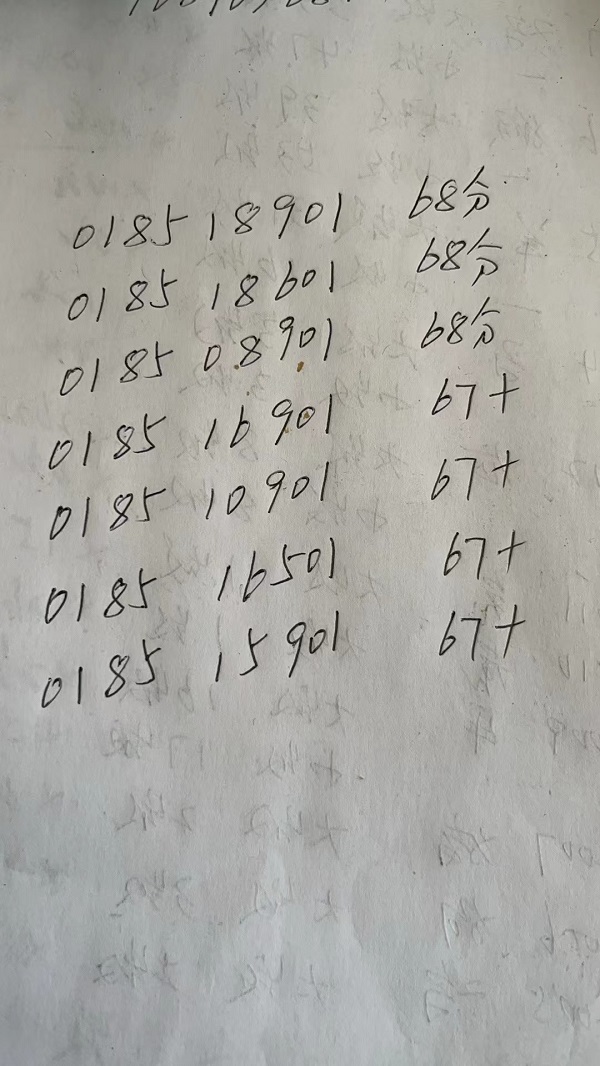 0185 18901 68分
0185 18601 68分
0185 08901 68分
0185 16901 67+
0185 10901 67+
0185 16501 67+
0185 15901 67+